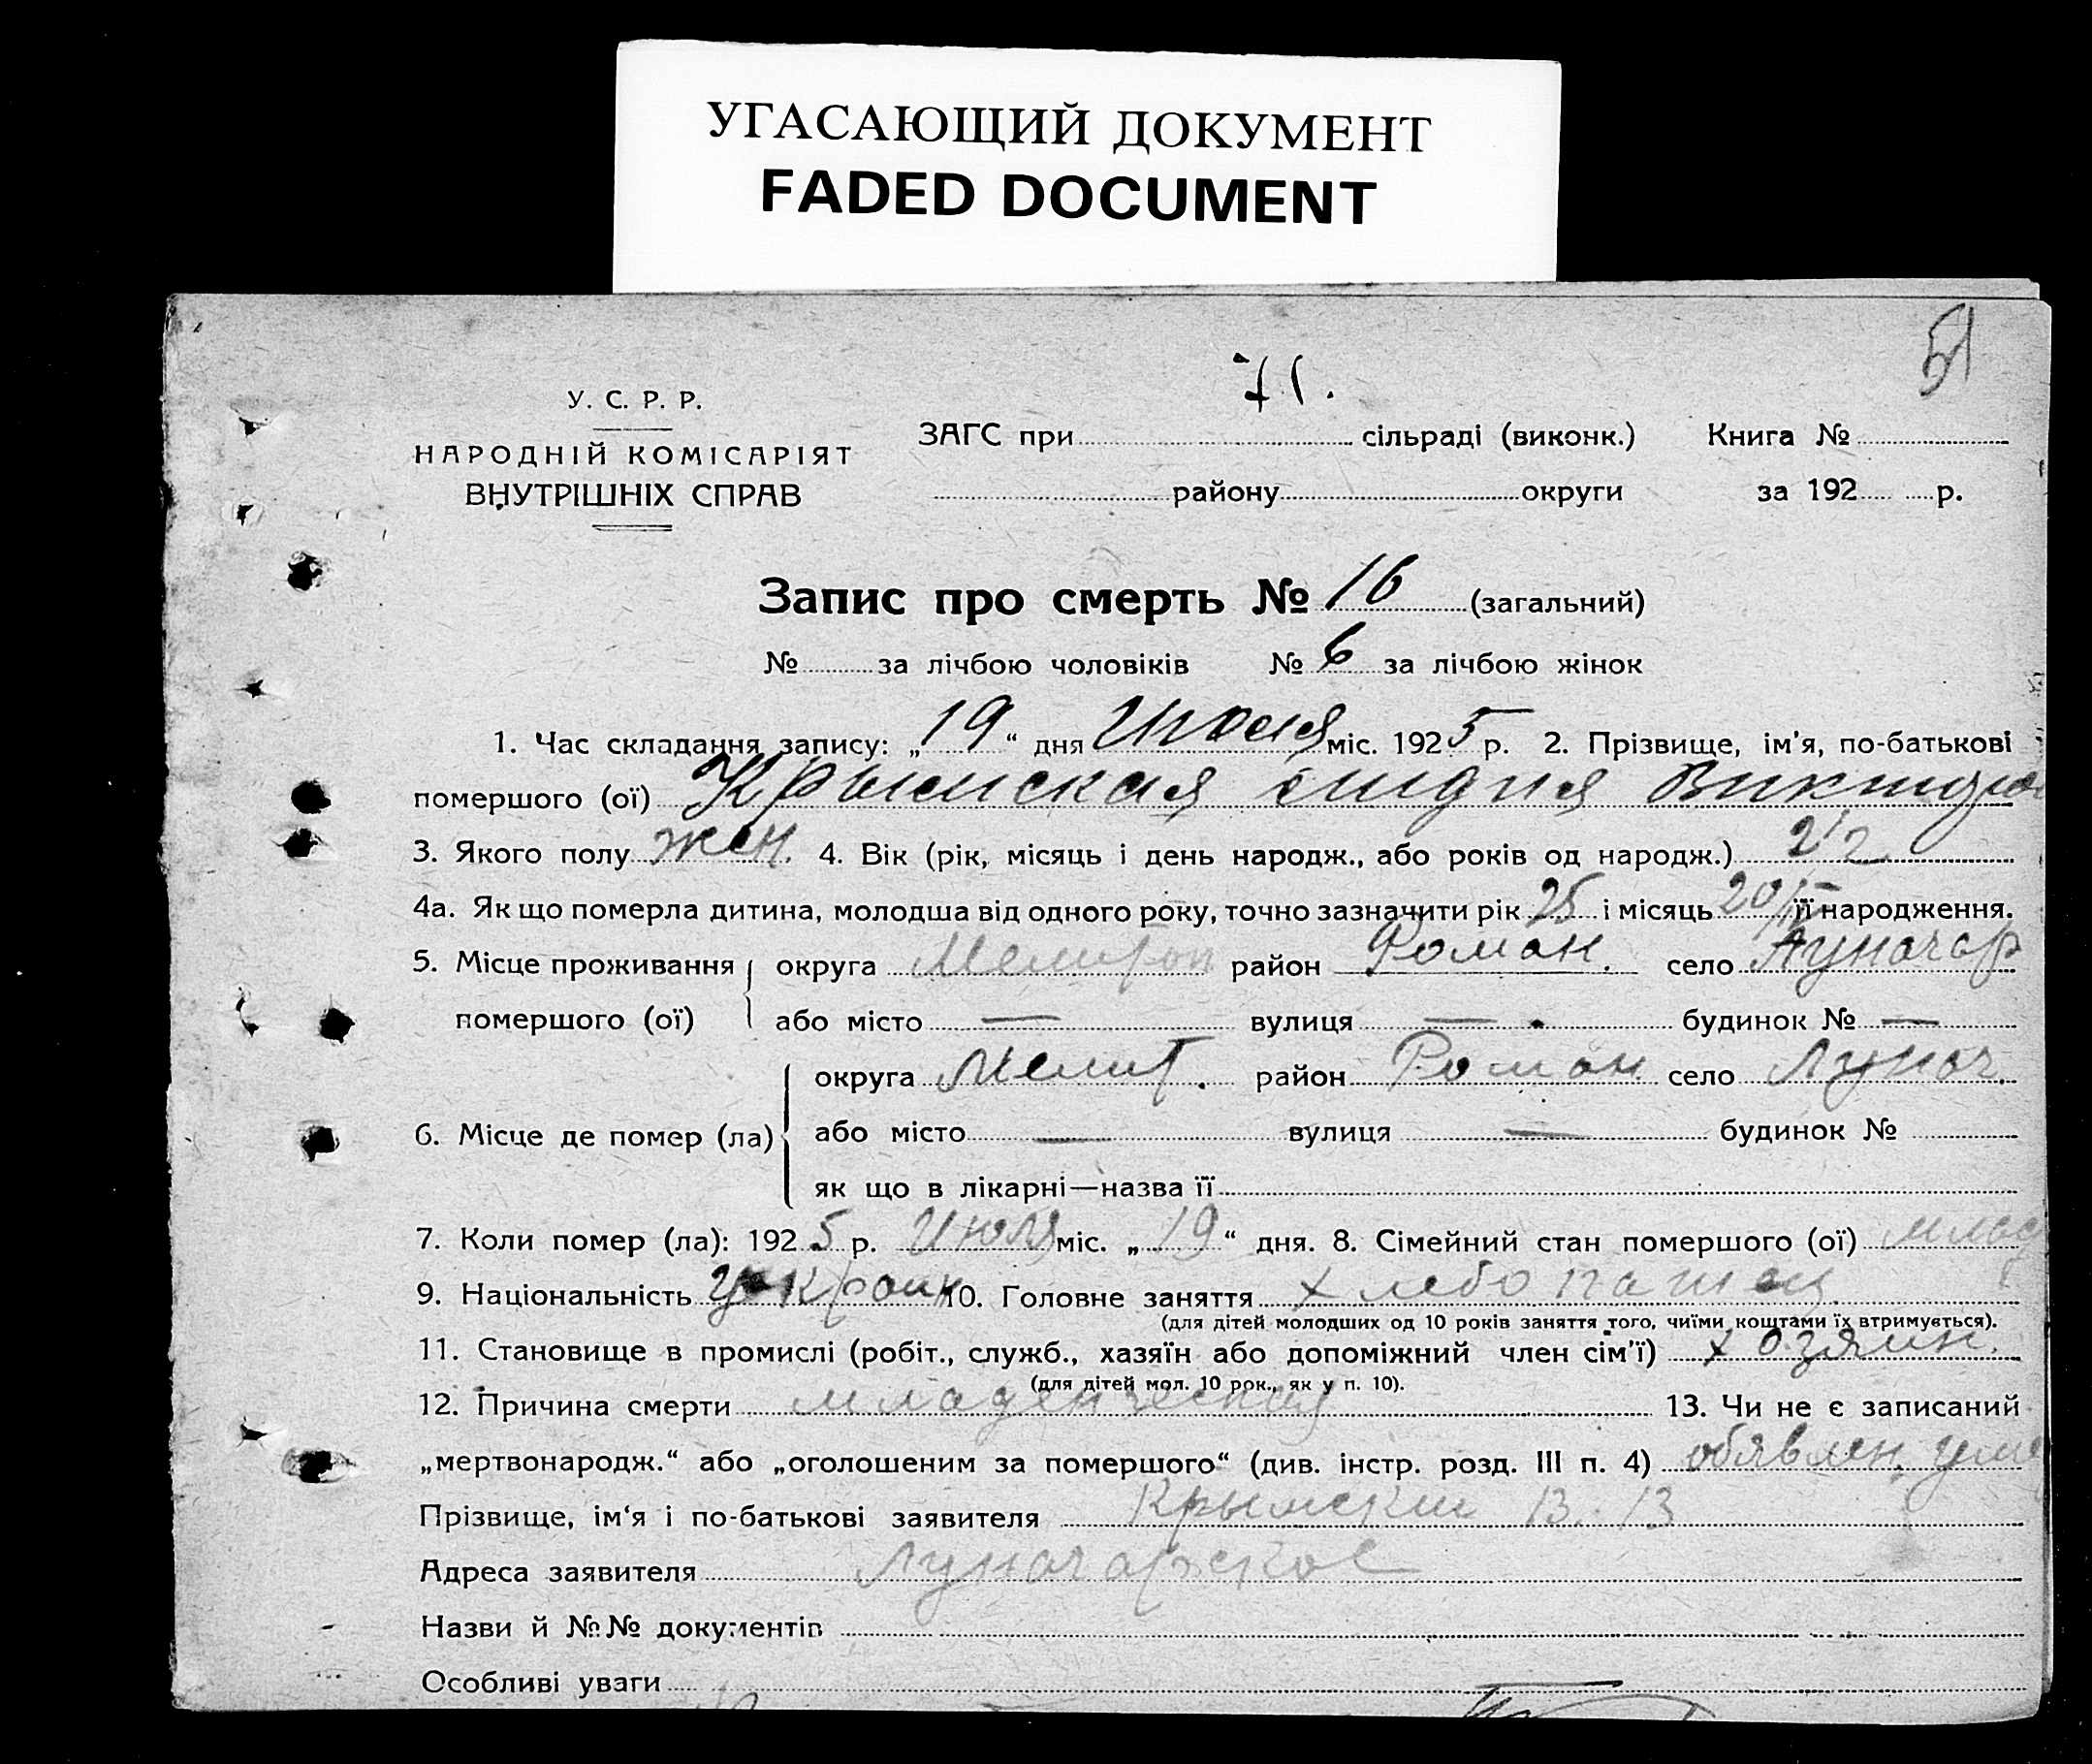 УГАСАЮЩИЙ ДОКУМЕНТ
FADED DOCUMENT
51
71.
У. С. Р. Р.
НАРОДНІЙ КОМІСАРІЯТ
ВНУТРІШНІХ СПРАВ
ЗАГС при сільраді (виконк.) Книга №
району округи за 192 р.
Запис про смерть № 16 (загальний)
№ за лічбою чоловіків № 6 за лічбою жінок
1. Час складання запису: „19“ дня Июля міс. 1925 р. 2. Прізвище, ім'я, по-батькові
помершого (ої) Крымская Лидия
3. Якого полу жен. 4. Вік (рік, місяць і день народж., або років од народж.)
4а. Як що померла дитина, молодша від одного року, точно зазначити рік 25 і місяць її народження.
5. Місце проживання округа Мелитоп район Роман. село Луначар
помершого (ої) або місто — вулиця — будинок № —
округа Мелит. район Роман село Лунач.
6. Місце де помер (ла) або місто — вулиця — будинок №
як що в лікарні—назва її
7. Коли помер (ла): 1925 р. Июля міс. „19“ дня. 8. Сімейний стан помершого (ої) млад
9. Національність Украин 10. Головне заняття хлебопашец
(для дітей молодших од 10 років заняття того, чиїми коштами їх втримується).
11. Становище в промислі (робіт., служб., хазяїн або допоміжний член сім'ї) хозяин.
(для дітей мол. 10 рок., як у п. 10).
12. Причина смерти младенческая 13. Чи не є записаний
„мертвонародж.“ або „оголошеним за помершого“ (див. інстр. розд. III п. 4) обявлен.
Прізвище, ім'я і по-батькові заявителя Крымский В.
Адреса заявителя Луначарское
Назви й №№ документів
Особливі уваги